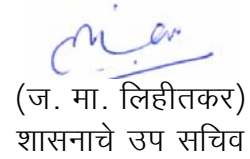 (ज. मा. लिहीतकर)
शासनाचे उप सचिव